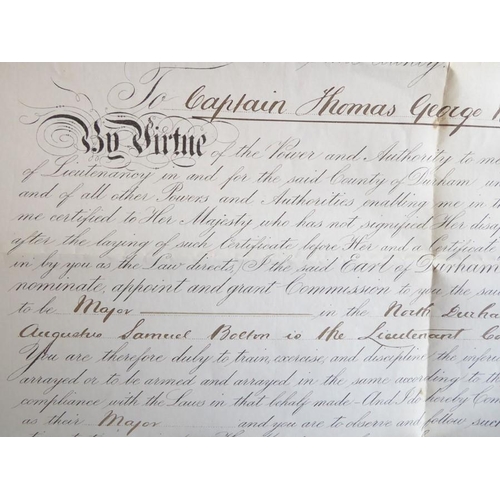 County.
To Captain Thomas George
By Virtue of the Power and Authority to me
of Lieutenancy in and for the said County of Durham
and of all other Powers and Authorities enabling me in th
me certified to Her Majesty who has not signified Her disa
after the laying of such Certificate before Her and a Certificate
in by you as the Law directs, I the said Earl of Durham
nominate, appoint and grant Commission to you the said
to be Major in the North Durha
Augustus Samuel Bolton is the Lieutenant Co
You are therefore duly to train, exercise, and discipline the inferio
arrayed or to be armed and arrayed in the same according to th
compliance with the Laws in that behalf made - And I do hereby Com
as their Major and you are to observe and follow such